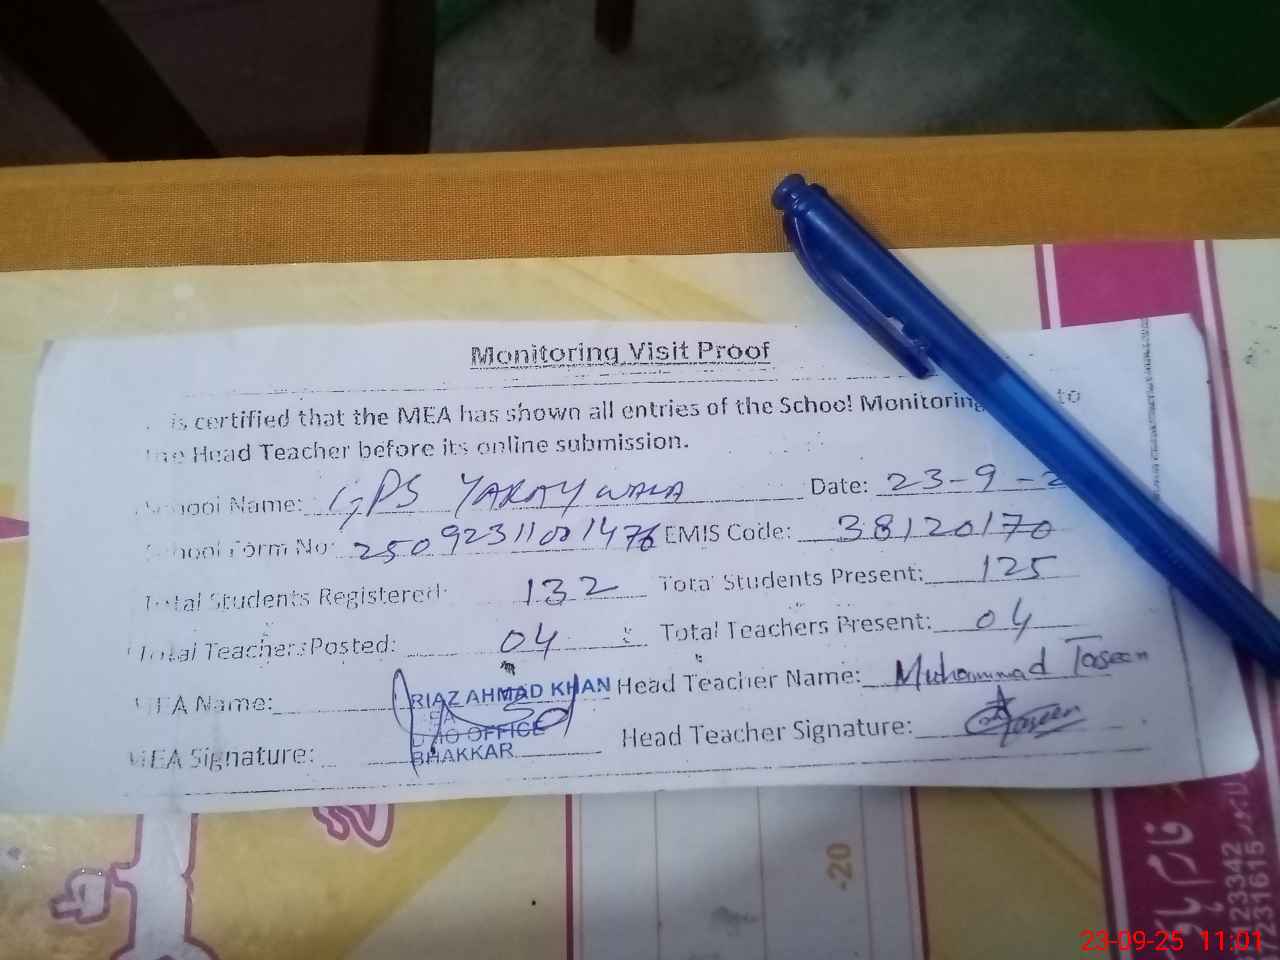 Monitoring Visit Proof
is certified that the MEA has shown all entries of the School Monitoring to
the Head Teacher before its online submission.
School Name: GPS YARAY WALA Date: 23-9-2
School Form No: 2509231101476 EMIS Code: 38120170
Total Students Registered: 132 Total Students Present: 125
Total Teachers Posted: 04 Total Teachers Present: 04
MEA Name: RIAZ AHMAD KHAN Head Teacher Name: Muhammad Taseen
OFFICE
MEA Signature: BHAKKAR Head Teacher Signature: Taseen
-20
23-09-25 11:01